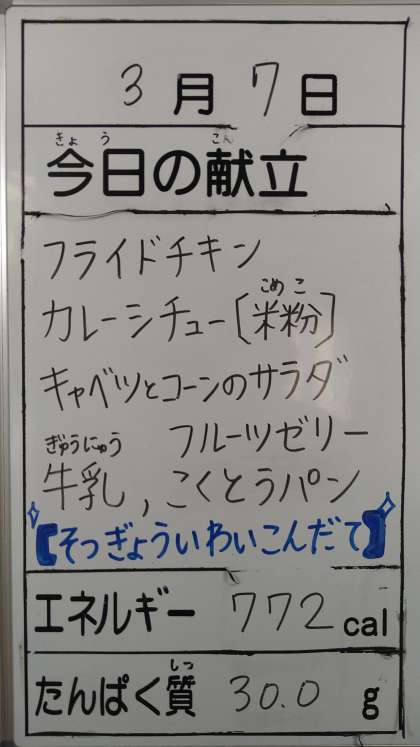 3月7日
きょう こん
今日の献立
フライドチキン
こめ こ
カレーシチュー[米粉]
キャベツとコーンのサラダ
ぎゅうにゅう フルーツゼリー
牛乳, こくとうパン
【そつぎょういわいこんだて】
エネルギー 772cal
しつ
たんぱく質 30.0 g